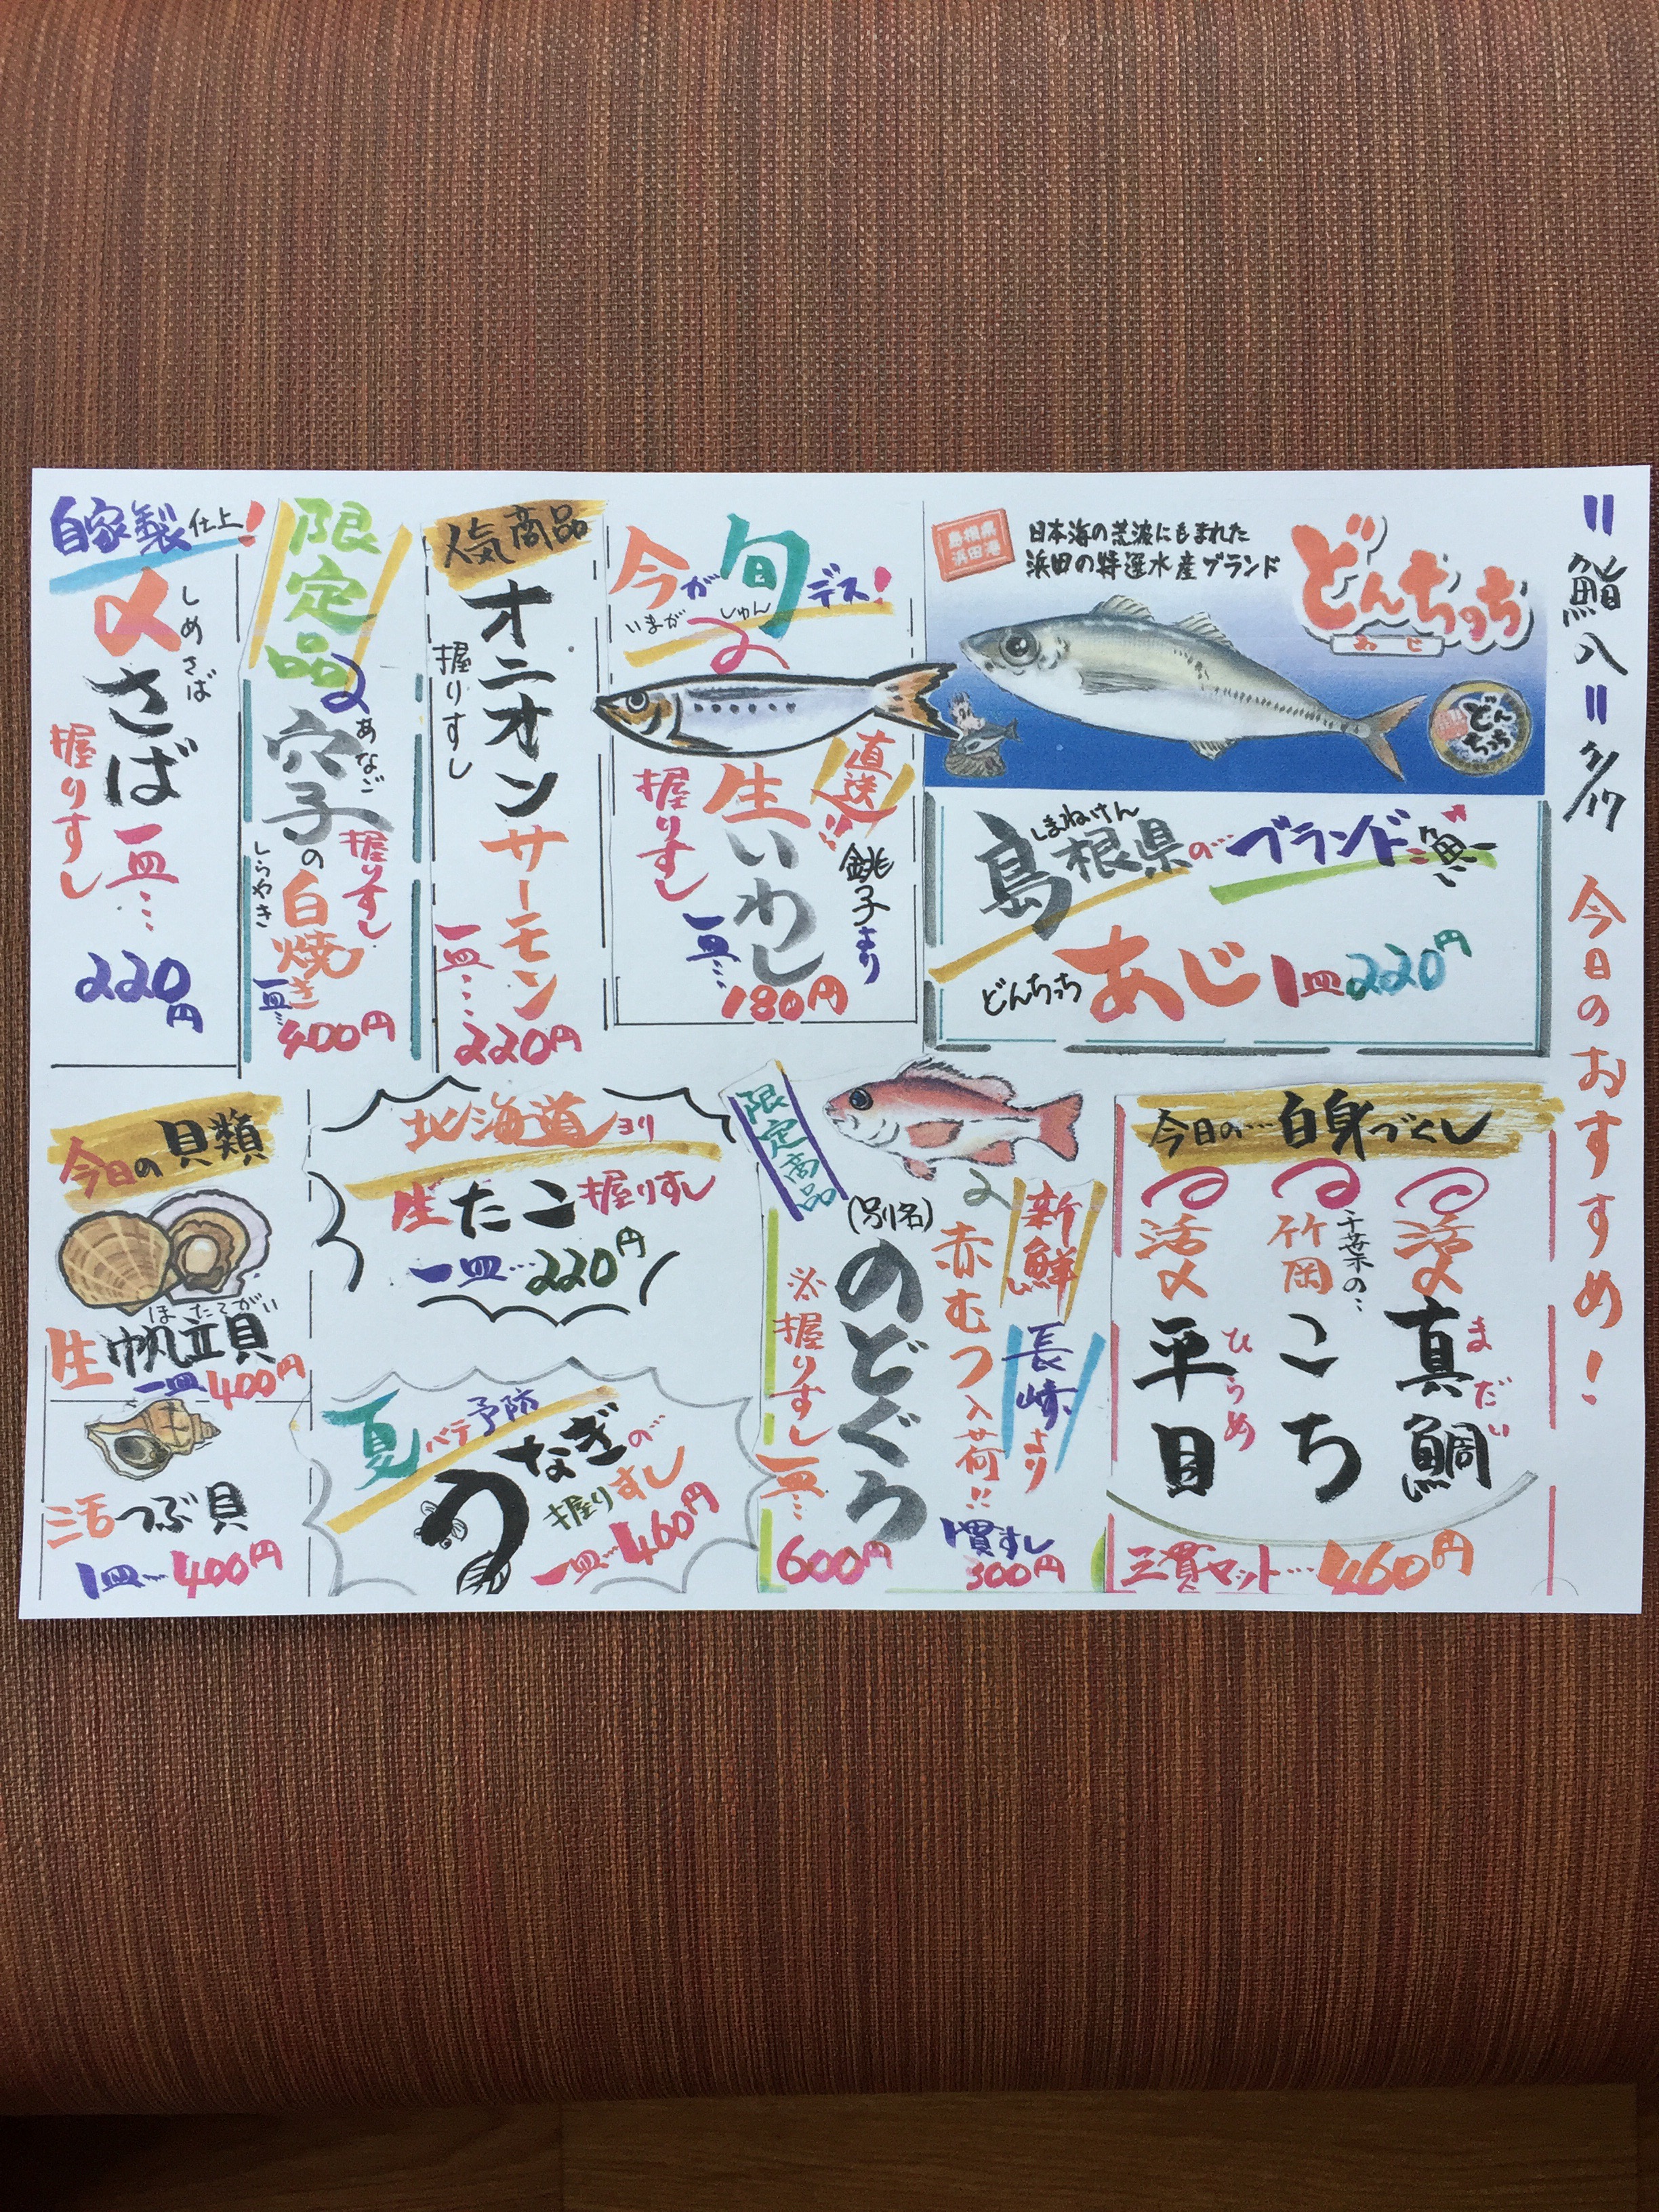 〃鮨八〃 7/17 今日のおすすめ!
島根県
浜田港
日本海の荒波にもまれた
浜田の特選水産ブランド
どんちっち
あじ
どんちっち
島根県の…ブランド魚
しまねけん
どんちっちあじ1皿220円
今が旬デス!
いまが しゅん
直送!!
銚子より
生いわし
握りすし
一皿…
180円
人気商品
オニオンサーモン
握りすし
一皿…
220円
限定品
穴子の白焼き
あなご
しらやき
握りすし
一皿…
400円
自家製仕上!
〆さば
しめさば
握りすし
一皿…
220円
今日の…白身づくし
活〆真鯛
まだい
千葉の…
竹岡こち
活〆平目
ひらめ
三貫セット…460円
限定商品
新鮮
長崎より
赤むつ入荷!!
(別名)
のどぐろ
※握りすし一皿…
600円
1貫すし
300円
北海道ヨリ
生たこ握りすし
一皿…220円
夏バテ予防
うなぎの…
握りすし
一皿…460円
今日の貝類
ほたてがい
生帆立貝
一皿400円
活つぶ貝
1皿…400円